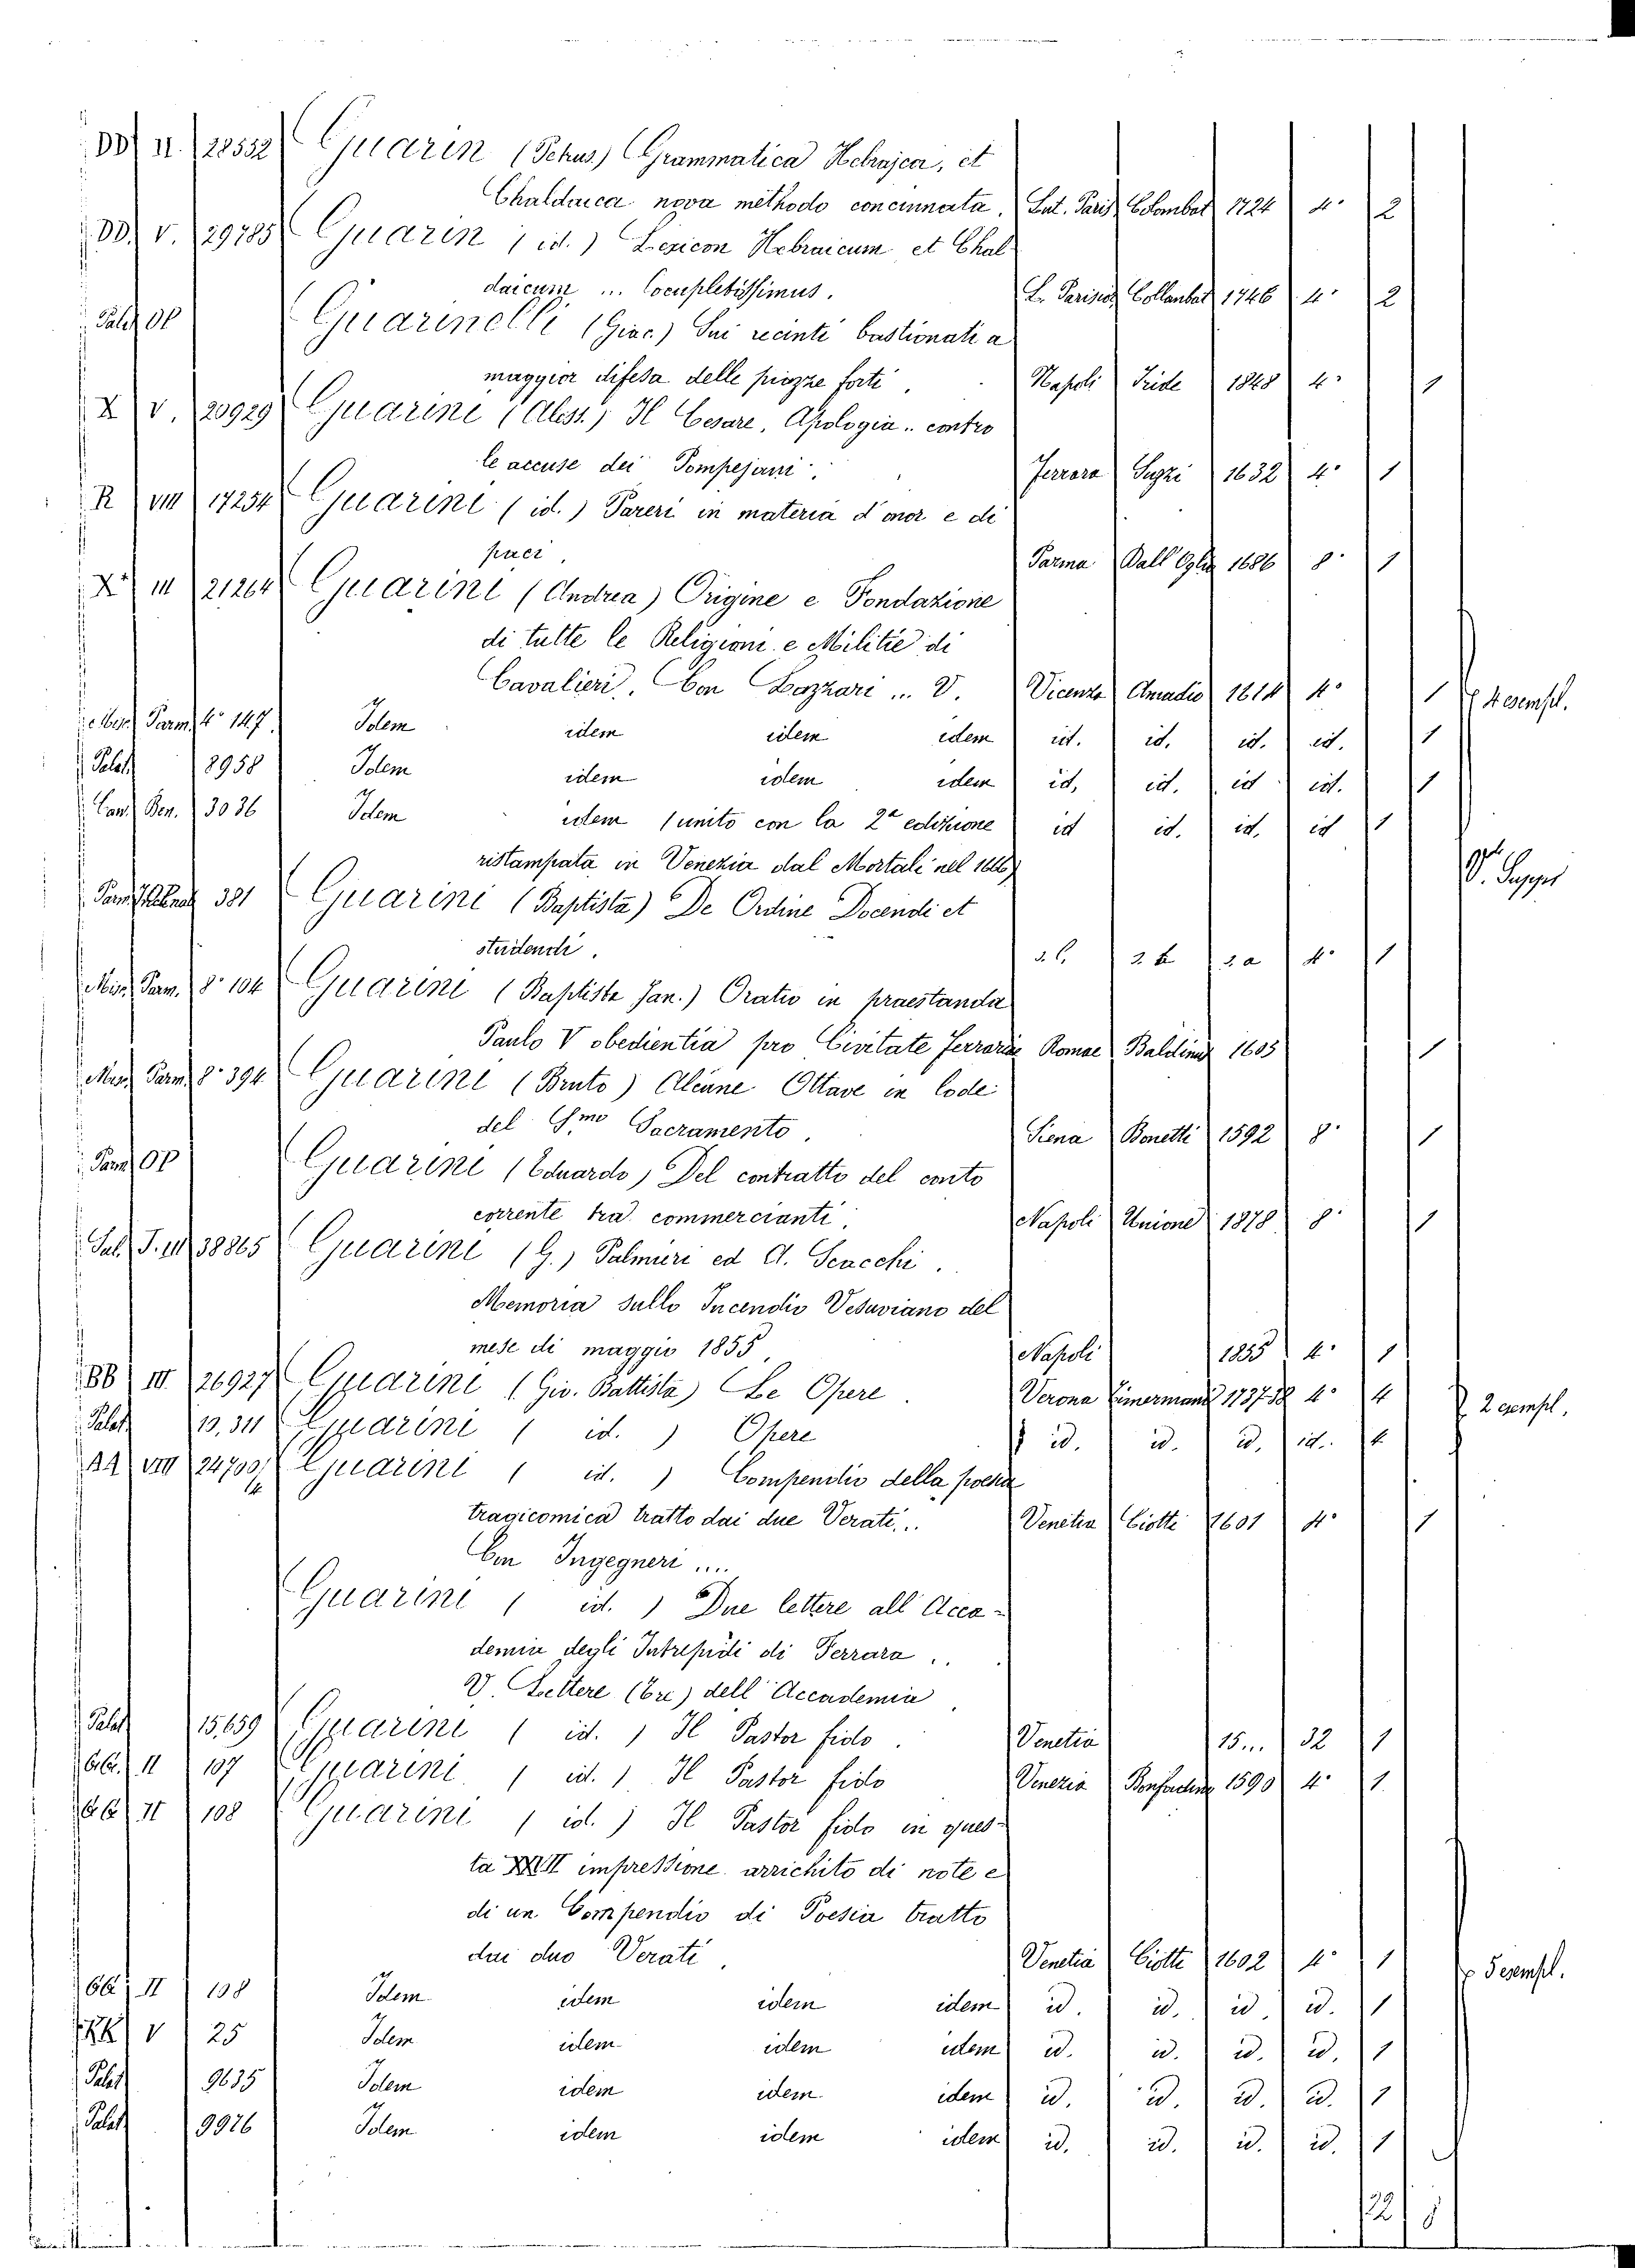 DD II. 28552 Guarin (Petrus) Grammatica Hebrajca, et
Chaldaica nova methodo concinnata. Lut. Paris Colombat 1724 4° 2
DD. V. 29785 Guarin (id.) Lexicon Hebraicum et Chal
daicum ... locupletissimus. L. Parisior Collambat 1746 4° 2
Palat OP Guarinelli (Giac.) Sui recinti bastionati a
maggior difesa delle piazze forti. Napoli Iride 1848 4° 1
X V. 20929 Guarini (Aless.) Il Cesare, Apologia .. contro
le accuse dei Pompejani. Ferrara Suzzi 1632 4° 1
R VIII 17254 Guarini (id.) Pareri in materia d'onor e di
paci. Parma Dall'Oglio 1686 8° 1
X III 21264 Guarini (Andrea) Origine e Fondazione
di tutte le Religioni e Militie di
Cavalieri. Con Lazzari ... V. Vicenza Amadio 1614 4° 1 4 esempl.
Misc. Parm 4° 147. Idem idem idem idem id. id. id. id. 1
Palat 8958 Idem idem idem idem id. id. id id. 1
Can. Ben. 3036 Idem idem (unito con la 2ª edizione id id. id. id 1
ristampata in Venezia dal Mortali nel
381 Guarini (Baptista) De Ordine Docendi et
studendi. s. l. s. t. s. a 4° 1
Misc. Parm. 8° 104 Guarini (Baptista Jan.) Oratio in praestanda
Paulo V obedientia pro Civitate Ferrariae Romae 1605 1
Misc. Parm. 8° 394 Guarini (Bruto) Alcune Ottave in lode
del Smo Sacramento. Siena Bonetti 1592 8° 1
Parm OP Guarini (Eduardo) Del contratto del conto
corrente tra commercianti. Napoli Unione 1878 8° 1
Sal. T. III 38865 Guarini (G.) Palmieri ed A. Scacchi.
Memoria sullo Incendio Vesuviano del
mese di maggio 1855. Napoli 1855 4° 1
BB III 26927 Guarini (Gio. Battista) Le Opere. Verona Tumermani 1737-38 4° 4 2 esempl.
Palat 13,311 Guarini (id.) Opere id. id. id. id. 4
AA VIII 24700/4 Guarini (id.) Compendio della poesia
tragicomica tratto dai due Verati... Venetia Ciotti 1601 4° 1
Con Ingegneri ....
Guarini (id.) Due lettere all'Acca-
demia degli Intrepidi di Ferrara ..
V. Lettere (tre) dell'Accademia
Palat 15,659 Guarini (id.) Il Pastor fido. Venetia 15... 32 1
II 107 Guarini (id.) Il Pastor fido Venezia Bonfadino 1590 4° 1.
II 108 Guarini (id.) Il Pastor fido in ques-
ta impressione arrichito di note e
di un Compendio di Poesia tratto
dai duo Verati. Venetia Ciotti 1602 4° 1 5 esempl.
II 108 Idem idem idem idem id. id. id. id. 1
V 25 Idem idem idem idem id. id. id. id. 1
Palat 9635 Idem idem idem idem id. id. id. id. 1
Palat 9926 Idem idem idem idem id. id. id. id. 1
22